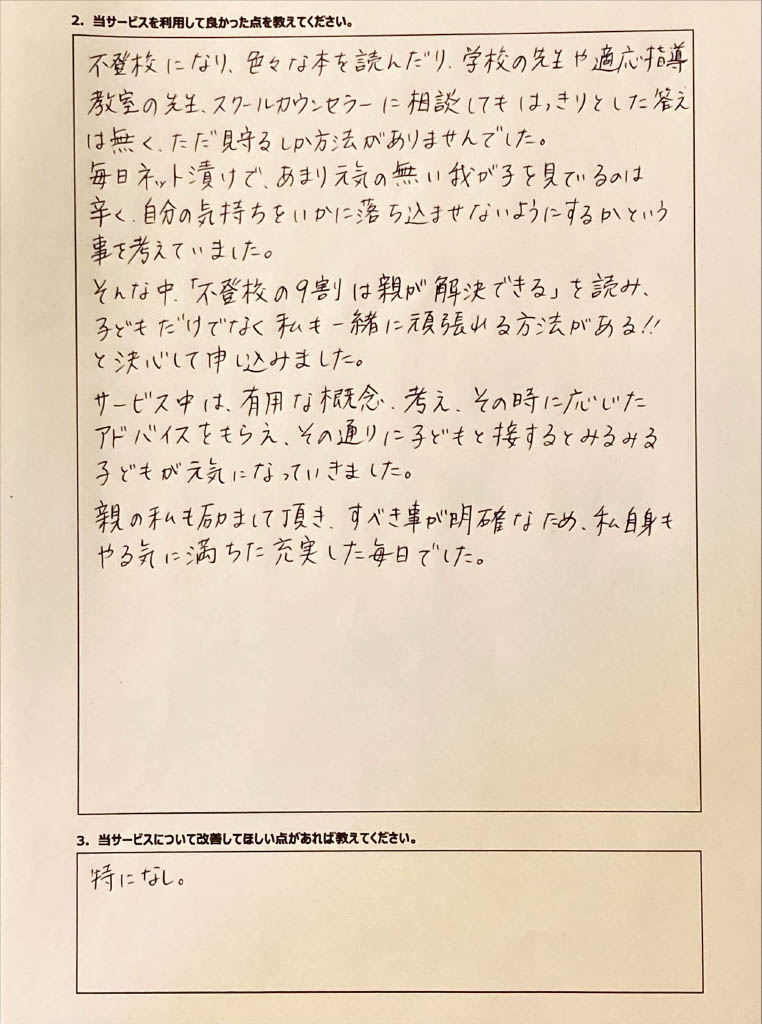 2. 当サービスを利用して良かった点を教えてください。
不登校になり、色々な本を読んだり、学校の先生や適応指導
教室の先生、スクールカウンセラーに相談してもはっきりとした答え
は無く、ただ見守るしか方法がありませんでした。
毎日ネット漬けで、あまり元気の無い我が子を見ているのは
辛く、自分の気持ちをいかに落ち込ませないようにするかという
事を考えていました。
そんな中、「不登校の9割は親が解決できる」を読み、
子どもだけでなく私も一緒に頑張れる方法がある!!
と決心して申し込みました。
サービス中は、有用な概念、考え、その時に応じた
アドバイスをもらえ、その通りに子どもと接するとみるみる
子どもが元気になっていきました。
親の私も励まして頂き、すべき事が明確なため、私自身も
やる気に満ちた充実した毎日でした。
3. 当サービスについて改善してほしい点があれば教えてください。
特になし。